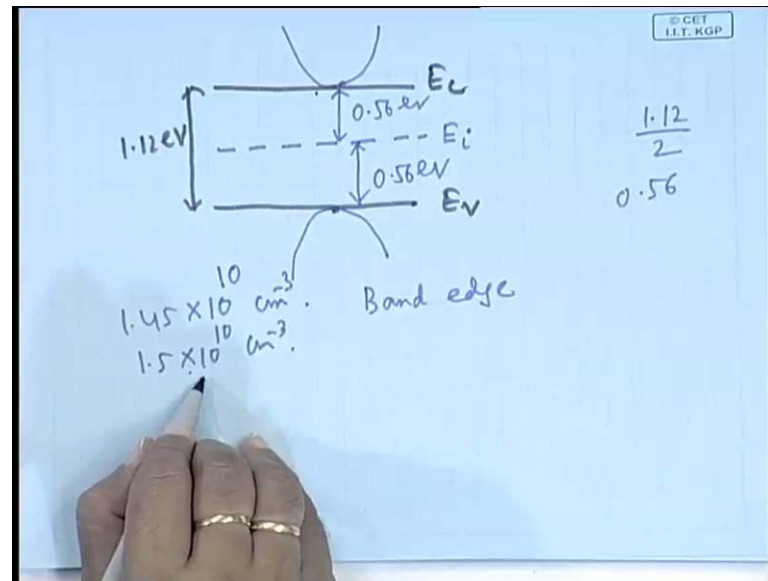 © CET
I.I.T. KGP
Ec
0.56 eV
1.12 eV
Ei
0.56 eV
Ev
1.12
2
0.56
1.45 × 10^10 cm^-3. Band edge
1.5 × 10^10 cm^-3.